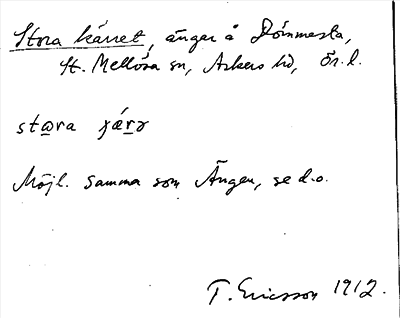 Stora kärret, änger å Dömmesta,
St. Mellösa sn, Askers hd, Ör. l.
stωra ɣærə
Möjl. samma som Ängen, se d.o.
T. Ericsson 1912.